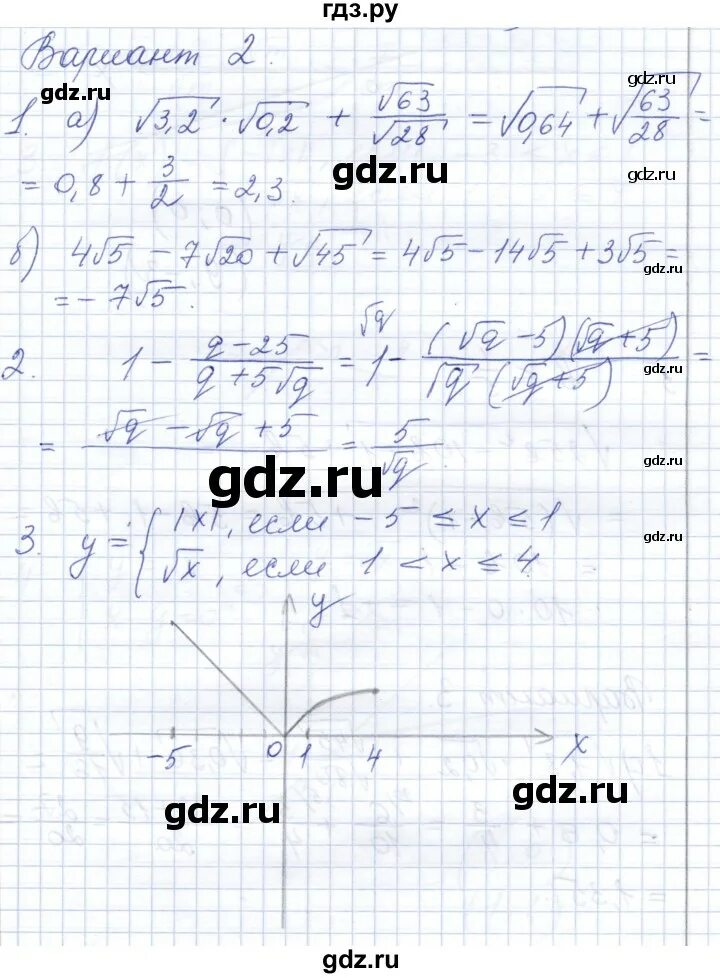 гдз.ру
Вариант 2.
gdz.ru gdz.ru
1. а) √3,2 · √0,2 + √63/√28 = √0,64 + √63/28 =
gdz.ru gdz.ru
= 0,8 + 3/2 = 2,3.
б) 4√5 - 7√20 + √45 = 4√5 - 14√5 + 3√5 =
gdz.ru
= - 7√5.
2. 1 - (q - 25)/(q + 5√q) = 1^√q - (√q - 5)(√q + 5)/(√q (√q + 5)) =
gdz.ru
= (√q - √q + 5)/ = 5/√q
gdz.ru gdz.ru
3. y = { |x|, если - 5 ≤ x ≤ 1
√x, если 1 < x ≤ 4.
gdz.ru
y
-5 0 1 4 x
gdz.ru gdz.ru
gdz.ru